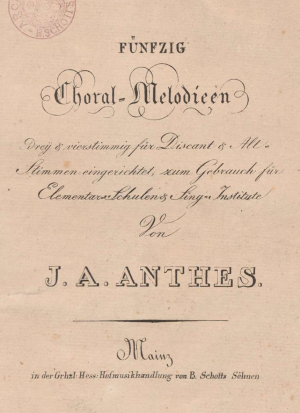 FÜNFZIG
Choral-Melodieen
drey & vierstimmig für Discant & Alt-
Stimmen eingerichtet, zum Gebrauch für
Elementar-Schulen & Sing-Institute
Von
J. A. ANTHES.
Mainz
in der Grhzl. Hess: Hofmusikhandlung von B. Schotts Söhnen